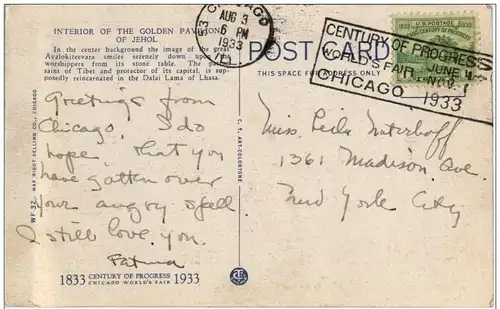 INTERIOR OF THE GOLDEN PAVILION
OF JEHOL
In the center background the image of the great
Avalokitesvara smiles serenely down upon
worshippers from its stone table. The
saint of Tibet and protector of its capital, is sup-
posedly reincarnated in the Dalai Lama of Lhasa.
CHICAGO
AUG 3
6 PM
1933
POST CARD
THIS SPACE FOR ADDRESS ONLY
U.S. POSTAGE
1833 CENTURY OF PROGRESS 1933
CENTURY OF PROGRESS
WORLD'S FAIR JUNE 1-
NOV. 1
CHICAGO 1933
Greetings from
Chicago, I do
hope that you
have gotten over
your angry spell
I still love you.
Fatima
Miss Leila
1361 Madison Ave.
New York City
WF 32 MAX RIGOT SELLING CO., CHICAGO
C. T. ART-COLORTONE
1833 CENTURY OF PROGRESS 1933
CHICAGO WORLD'S FAIR